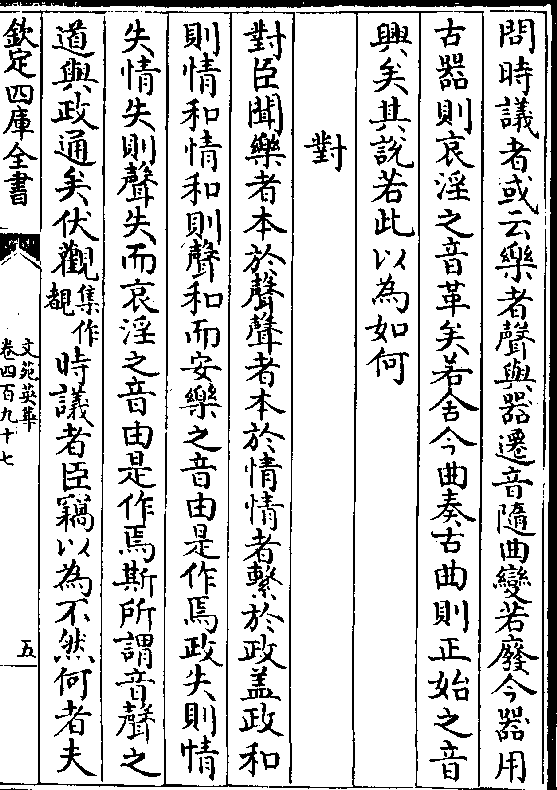 問時議者或云樂者聲與器遷音隨曲變若廢今器用
古器則哀淫之音革矣若舍今曲奏古曲則正始之音
興矣其說若此以為如何
對
對臣聞樂者本於聲聲者本於情情者繫於政蓋政和
則情和情和則聲和而安樂之音由是作焉政失則情
失情失則聲失而哀淫之音由是作焉斯所謂音聲之
道與政通矣伏觀集作覩時議者臣竊以為不然何者夫
欽定四庫全書
文苑英華
卷四百九十七
五